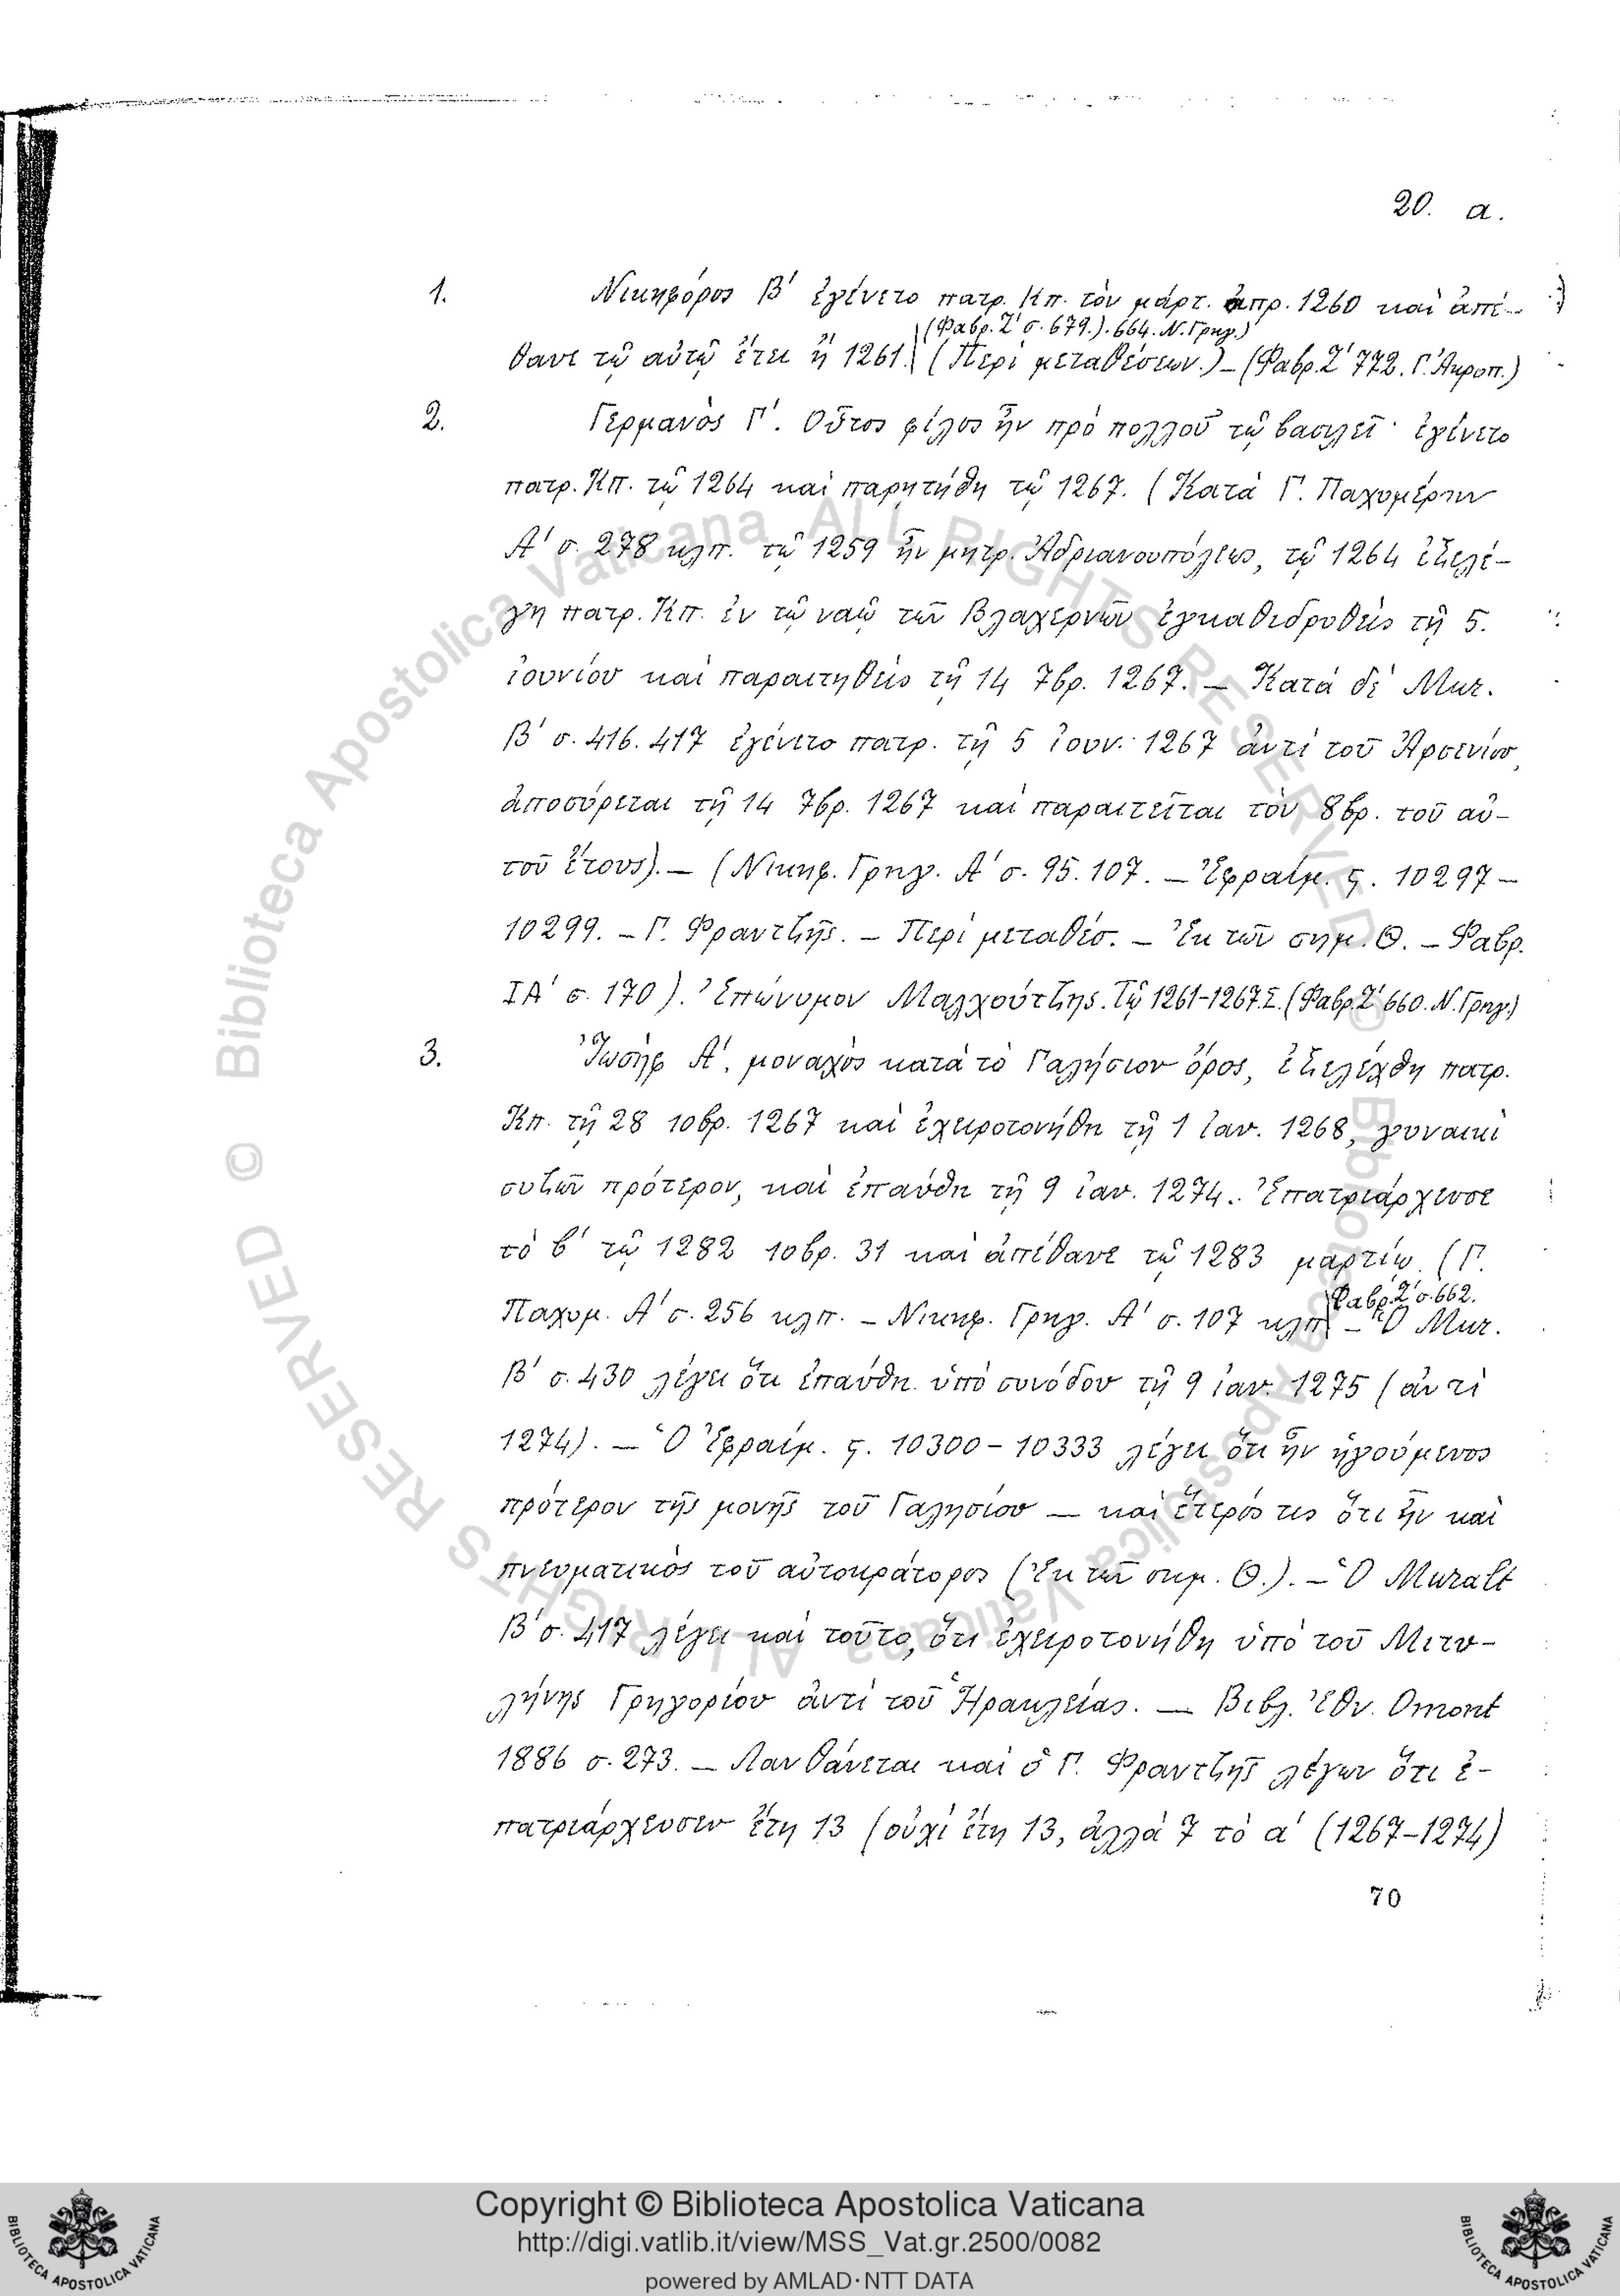 20. α.
1. Νικηφόρος Β' ἐγένετο πατρ. Κπ. τὸν μάρτ. ἀπρ. 1260 καὶ ἀπέ-
(Φαβρ. Ζ' σ. 679.). 664. Ν. Γρηγ.)
θανε τῷ αὐτῷ ἔτει ἢ 1261. (Περὶ μεταθέσεων.) – (Φαβρ. Ζ' 772. Γ. Ἀκροπ.)
2. Γερμανὸς Γ'. Οὗτος φίλος ἦν πρὸ πολλοῦ τῷ βασιλεῖ· ἐγένετο
πατρ. Κπ. τῷ 1264 καὶ παρῃτήθη τῷ 1267. (Κατὰ Γ. Παχυμέρην
Α' σ. 278 κλπ. τῷ 1259 ἦν μητρ. Ἀδριανουπόλεως, τῷ 1264 ἐξελέ-
γη πατρ. Κπ. ἐν τῷ ναῷ τῶν Βλαχερνῶν ἐγκαθιδρυθεὶς τῇ 5.
ἰουνίου καὶ παραιτηθεὶς τῇ 14 7βρ. 1267. – Κατὰ δὲ Μur.
Β' σ. 416. 417 ἐγένετο πατρ. τῇ 5 ἰουν. 1267 ἀντὶ τοῦ Ἀρσενίου,
ἀποσύρεται τῇ 14 7βρ. 1267 καὶ παραιτεῖται τὸν 8βρ. τοῦ αὐ-
τοῦ ἔτους). – (Νικηφ. Γρηγ. Α' σ. 95. 107. – Ἐφραίμ. ς. 10297 –
10299. – Γ. Φραντζῆς. – Περὶ μεταθέσ. – Ἐκ τῶν σημ. Θ. – Φαβρ.
ΙΑ' σ. 170). Ἐπώνυμον Μαλχούτζης. Τῷ 1261-1267. Σ. (Φαβρ. Ζ' 660. Ν. Γρηγ.)
3. Ἰωσὴφ Α', μοναχὸς κατὰ τὸ Γαλήσιον ὄρος, ἐξελέχθη πατρ.
Κπ. τῇ 28 10βρ. 1267 καὶ ἐχειροτονήθη τῇ 1 ἰαν. 1268, γυναικὶ
συζῶν πρότερον, καὶ ἐπαύθη τῇ 9 ἰαν. 1274. Ἐπατριάρχευσε
τὸ β' τῷ 1282 10βρ. 31 καὶ ἀπέθανε τῷ 1283 μαρτίῳ. (Γ.
Φαβρ. Ζ' σ. 662.
Παχυμ. Α' σ. 256 κλπ. – Νικηφ. Γρηγ. Α' σ. 107 κλπ. – Ὁ Μur.
Β' σ. 430 λέγει ὅτι ἐπαύθη ὑπὸ συνόδου τῇ 9 ἰαν. 1275 (ἀντὶ
1274). – Ὁ Ἐφραίμ. ς. 10300 – 10333 λέγει ὅτι ἦν ἡγούμενος
πρότερον τῆς μονῆς τοῦ Γαλησίου – καὶ ἕτερός τις ὅτι ἦν καὶ
πνευματικὸς τοῦ αὐτοκράτορος (Ἐκ τῶν σημ. Θ.). – Ὁ Muralt
Β' σ. 417 λέγει καὶ τοῦτο, ὅτι ἐχειροτονήθη ὑπὸ τοῦ Μιτυ-
λήνης Γρηγορίου ἀντὶ τοῦ Ἡρακλείας. – Βιβλ. Ἐθν. Omont
1886 σ. 273. – Λανθάνεται καὶ ὁ Γ. Φραντζῆς λέγων ὅτι ἐ-
πατριάρχευσεν ἔτη 13 (οὐχὶ ἔτη 13, ἀλλὰ 7 τὸ α' (1267-1274)
70
© Biblioteca Apostolica Vaticana ALL RIGHTS RESERVED
© Biblioteca Apostolica Vaticana ALL RIGHTS RESERVED
Copyright © Biblioteca Apostolica Vaticana
http://digi.vatlib.it/view/MSS_Vat.gr.2500/0082
powered by AMLAD·NTT DATA
BIBLIOTECA APOSTOLICA VATICANA
BIBLIOTECA APOSTOLICA VATICANA